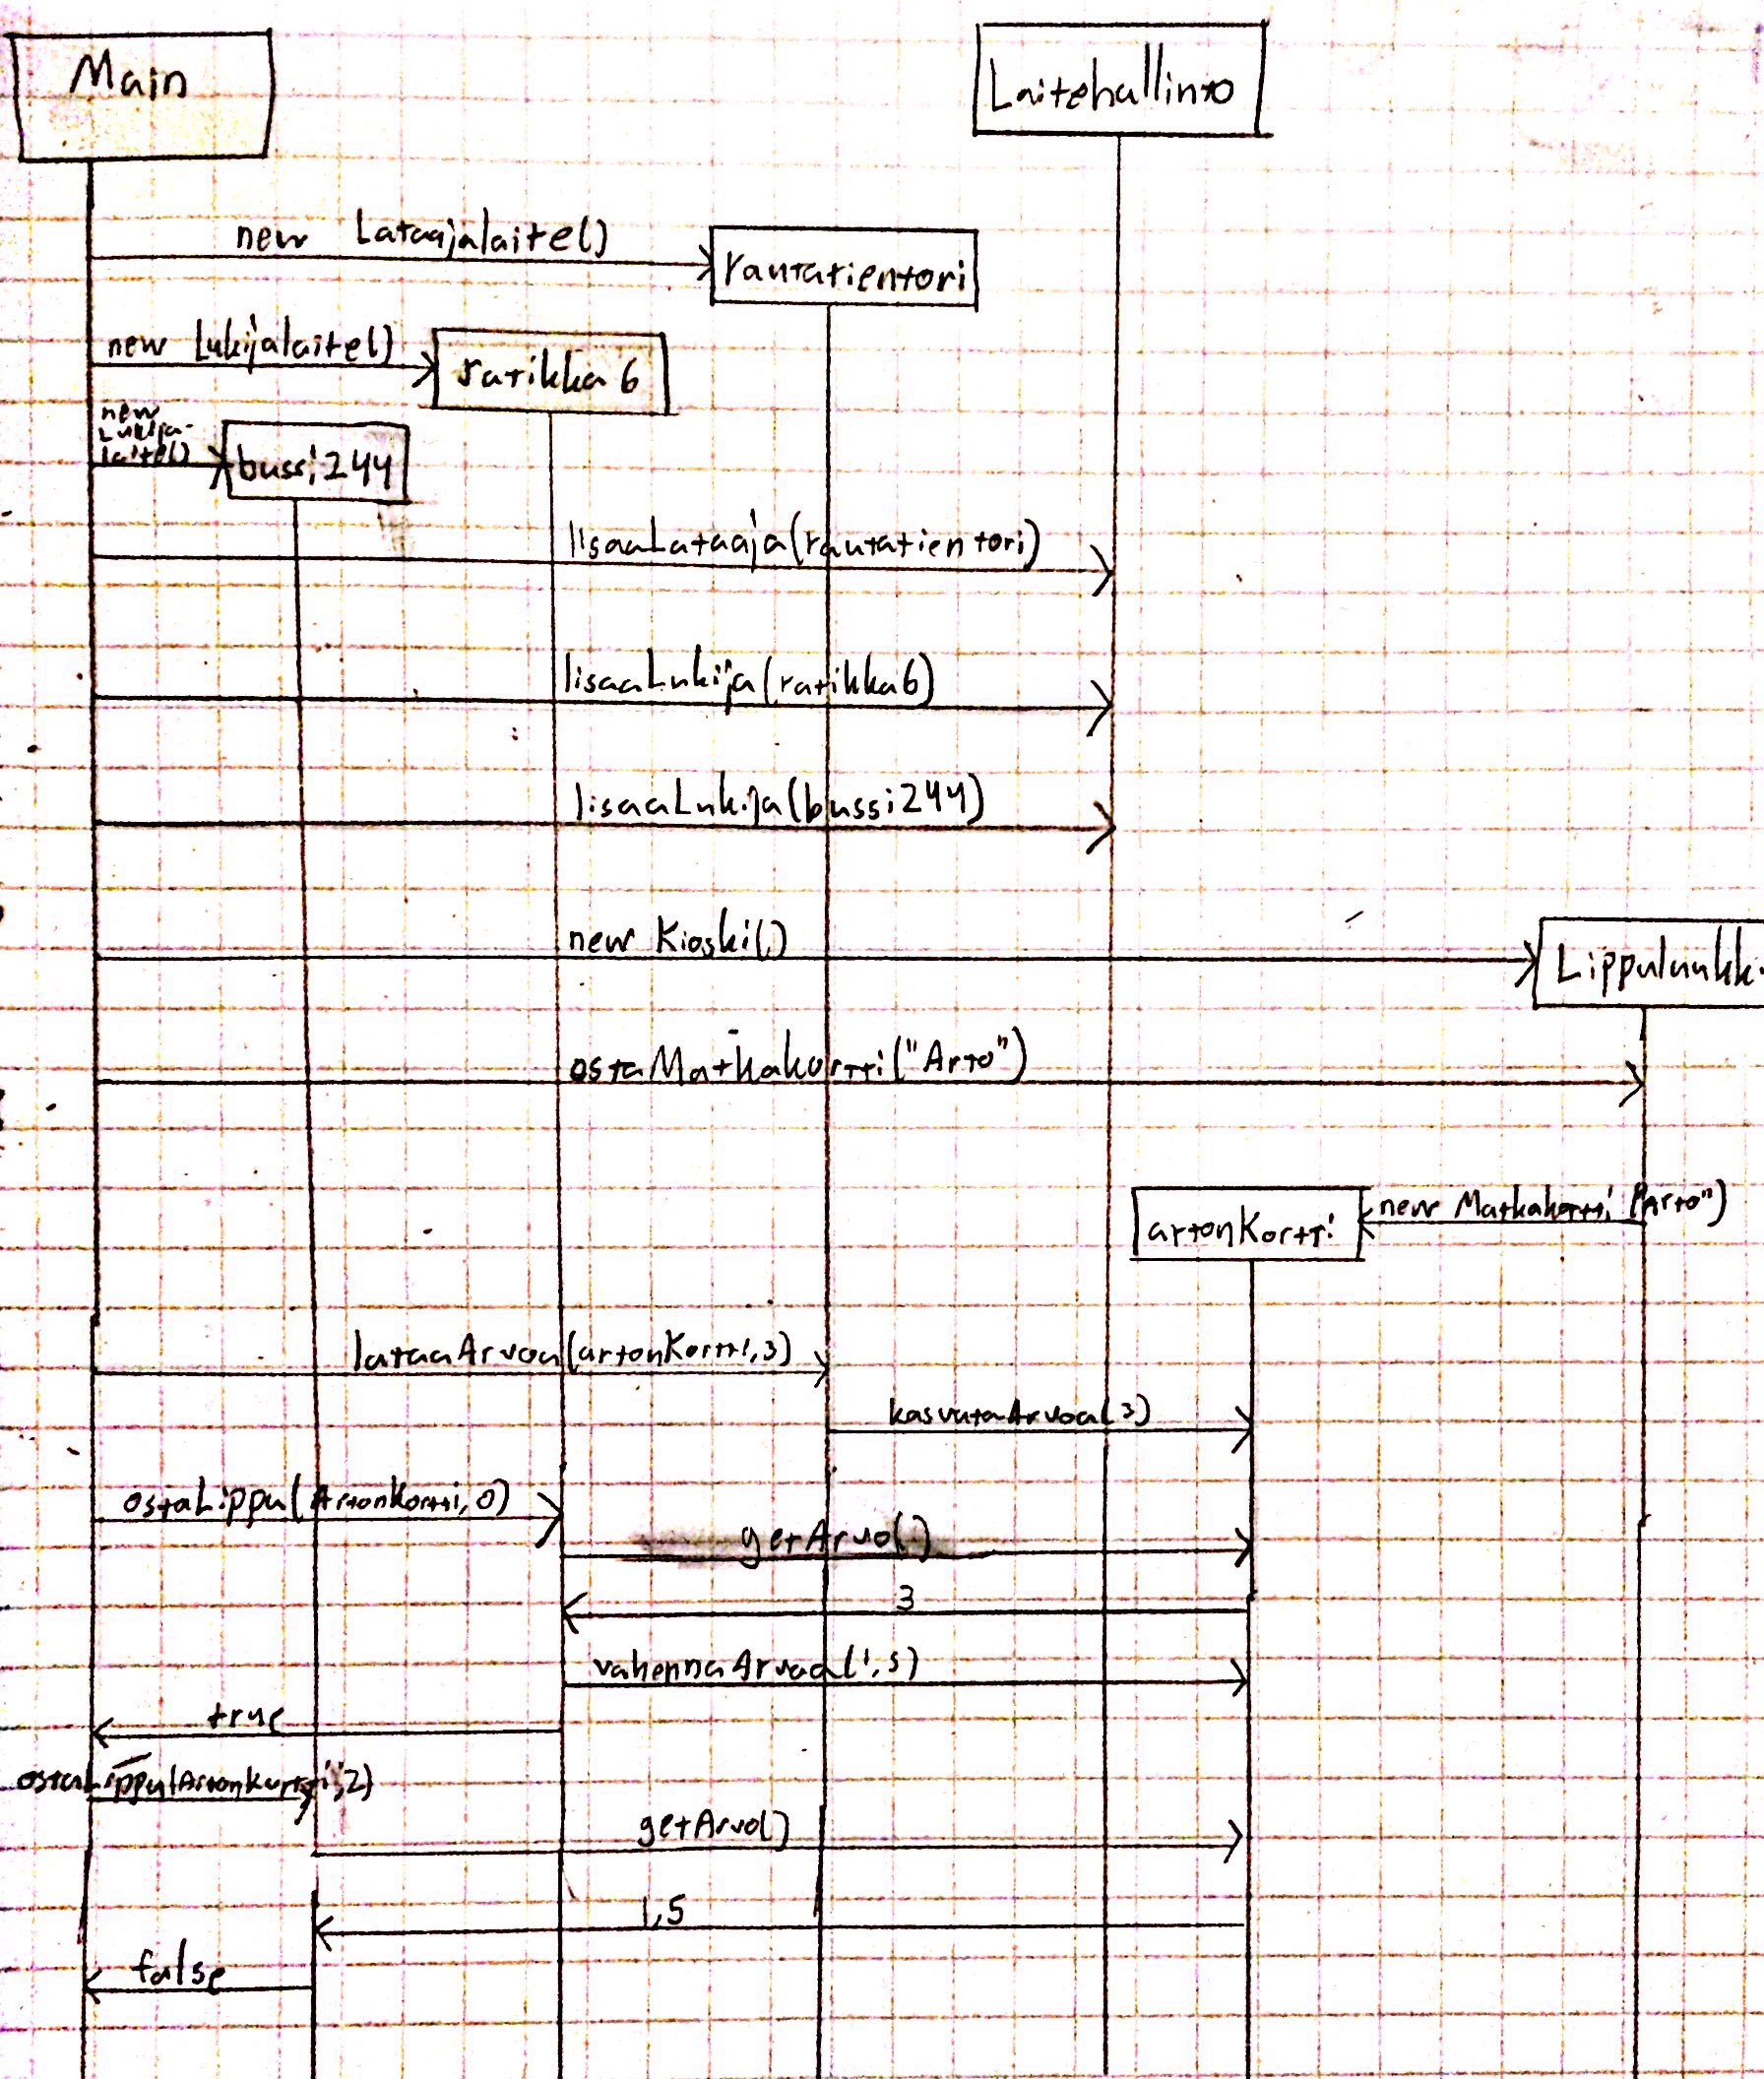 Main
Laitehallinto
new Lataajalaite()
rautatientori
new Lukijalaite()
ratikka 6
new
Lukija-
laite()
bussi244
lisaaLataaja(rautatientori)
lisaaLukija(ratikka6)
lisaaLukija(bussi244)
new Kioski()
Lippuluukk
ostaMatkakortti("Arto")
new Matkakortti("Arto")
artonKortti
lataaArvoa(artonKortti,3)
kasvataArvoa(3)
ostaLippu(ArtonKortti,0)
getArvo()
3
vahennaArvoa(1,5)
true
ostaLippu(ArtonKortti,2)
getArvo()
1,5
false